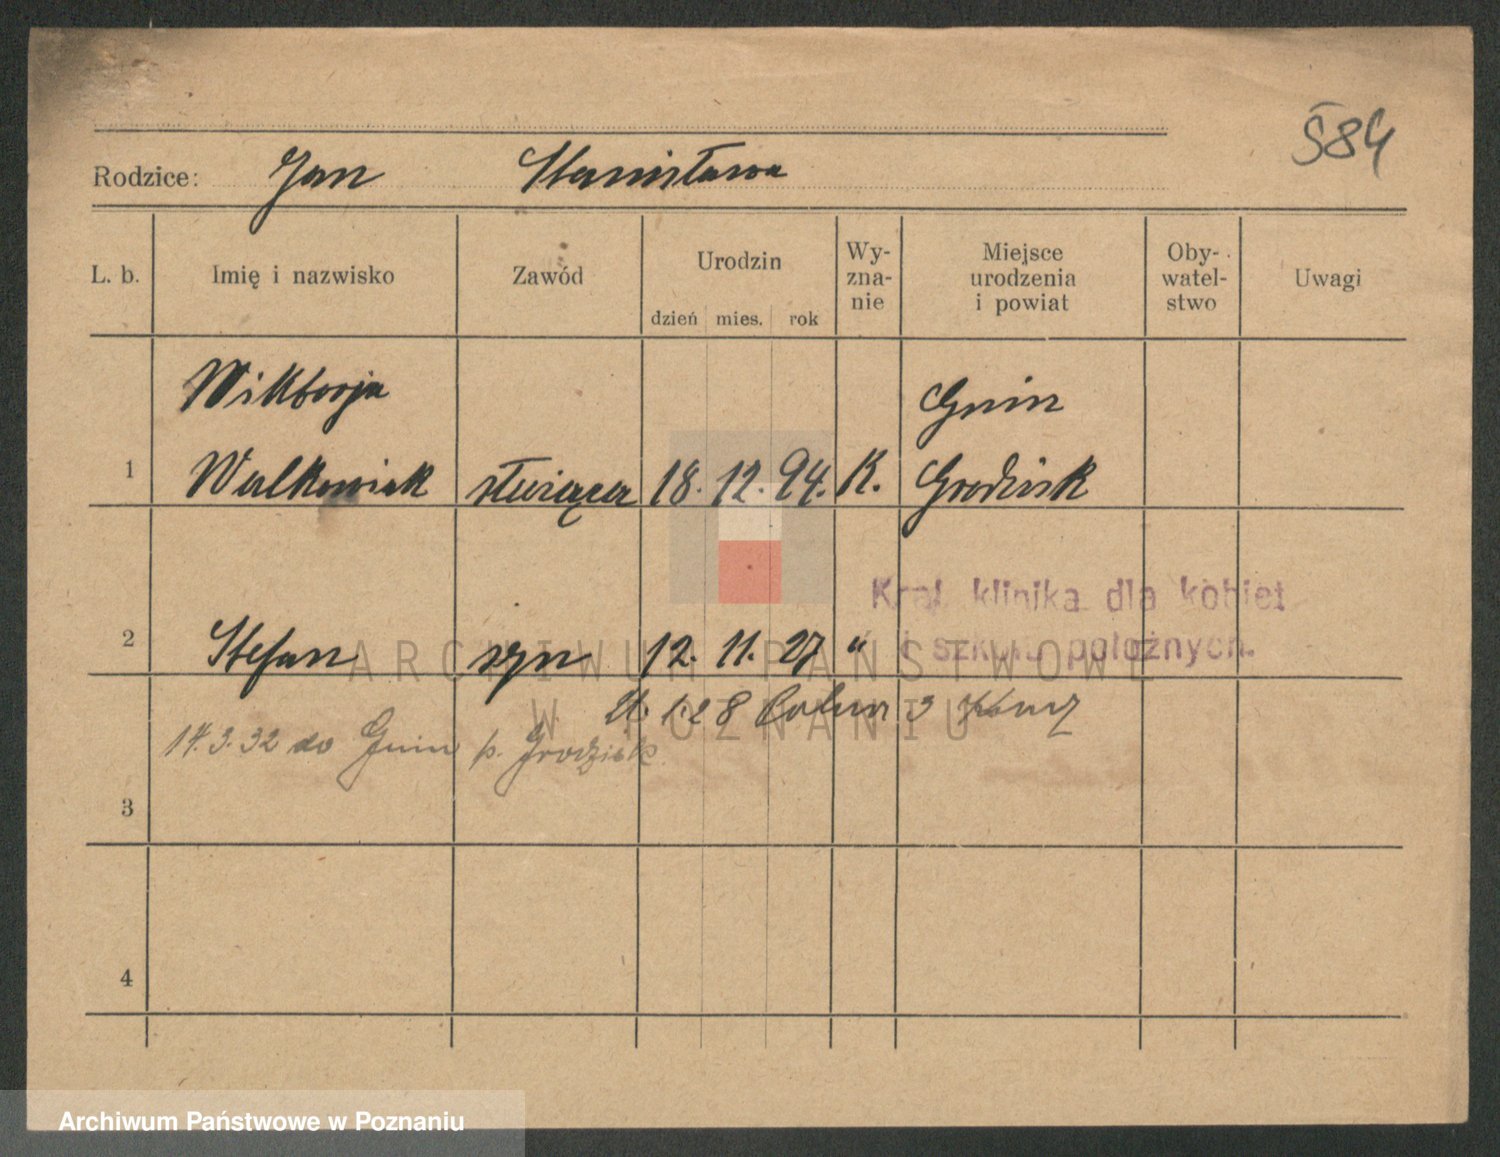 584
Rodzice: Jan Stanisława
L. b. Imię i nazwisko Zawód Urodzin Wy-zna-nie Miejsce urodzenia i powiat Oby-watel-stwo Uwagi
dzień mies. rok
Wiktorja Gnin
1 Walkowiak służąca 18. 12. 94. K. Grodzisk
Kraj. klinika dla kobiet
2 Stefan syn 12. 11. 27 "
i szkoła położnych.
ARCHIWUM PAŃSTWOWE
W POZNANIU
14.3.32 do Gnin p. Grodzisk
3
4
Archiwum Państwowe w Poznaniu